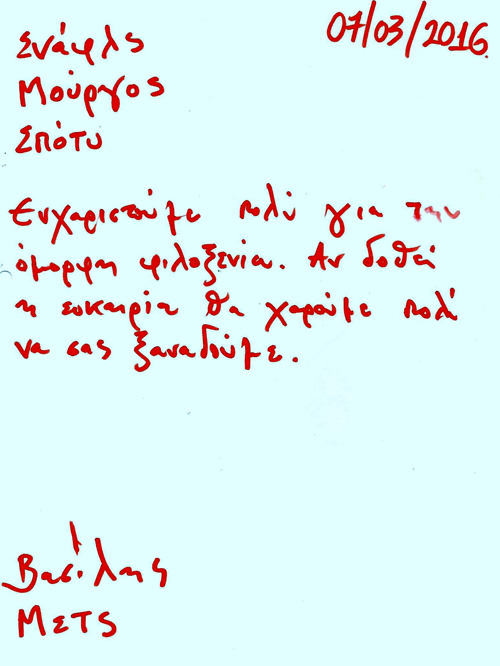 07/03/2016
Σνάφλς
Μούργος
Σπότυ
Ευχαριστούμε πολύ για την
όμορφη φιλοξενία. Αν δοθεί
η ευκαιρία θα χαρούμε πολύ
να σας ξαναδούμε.
Βασίλης
Μετς